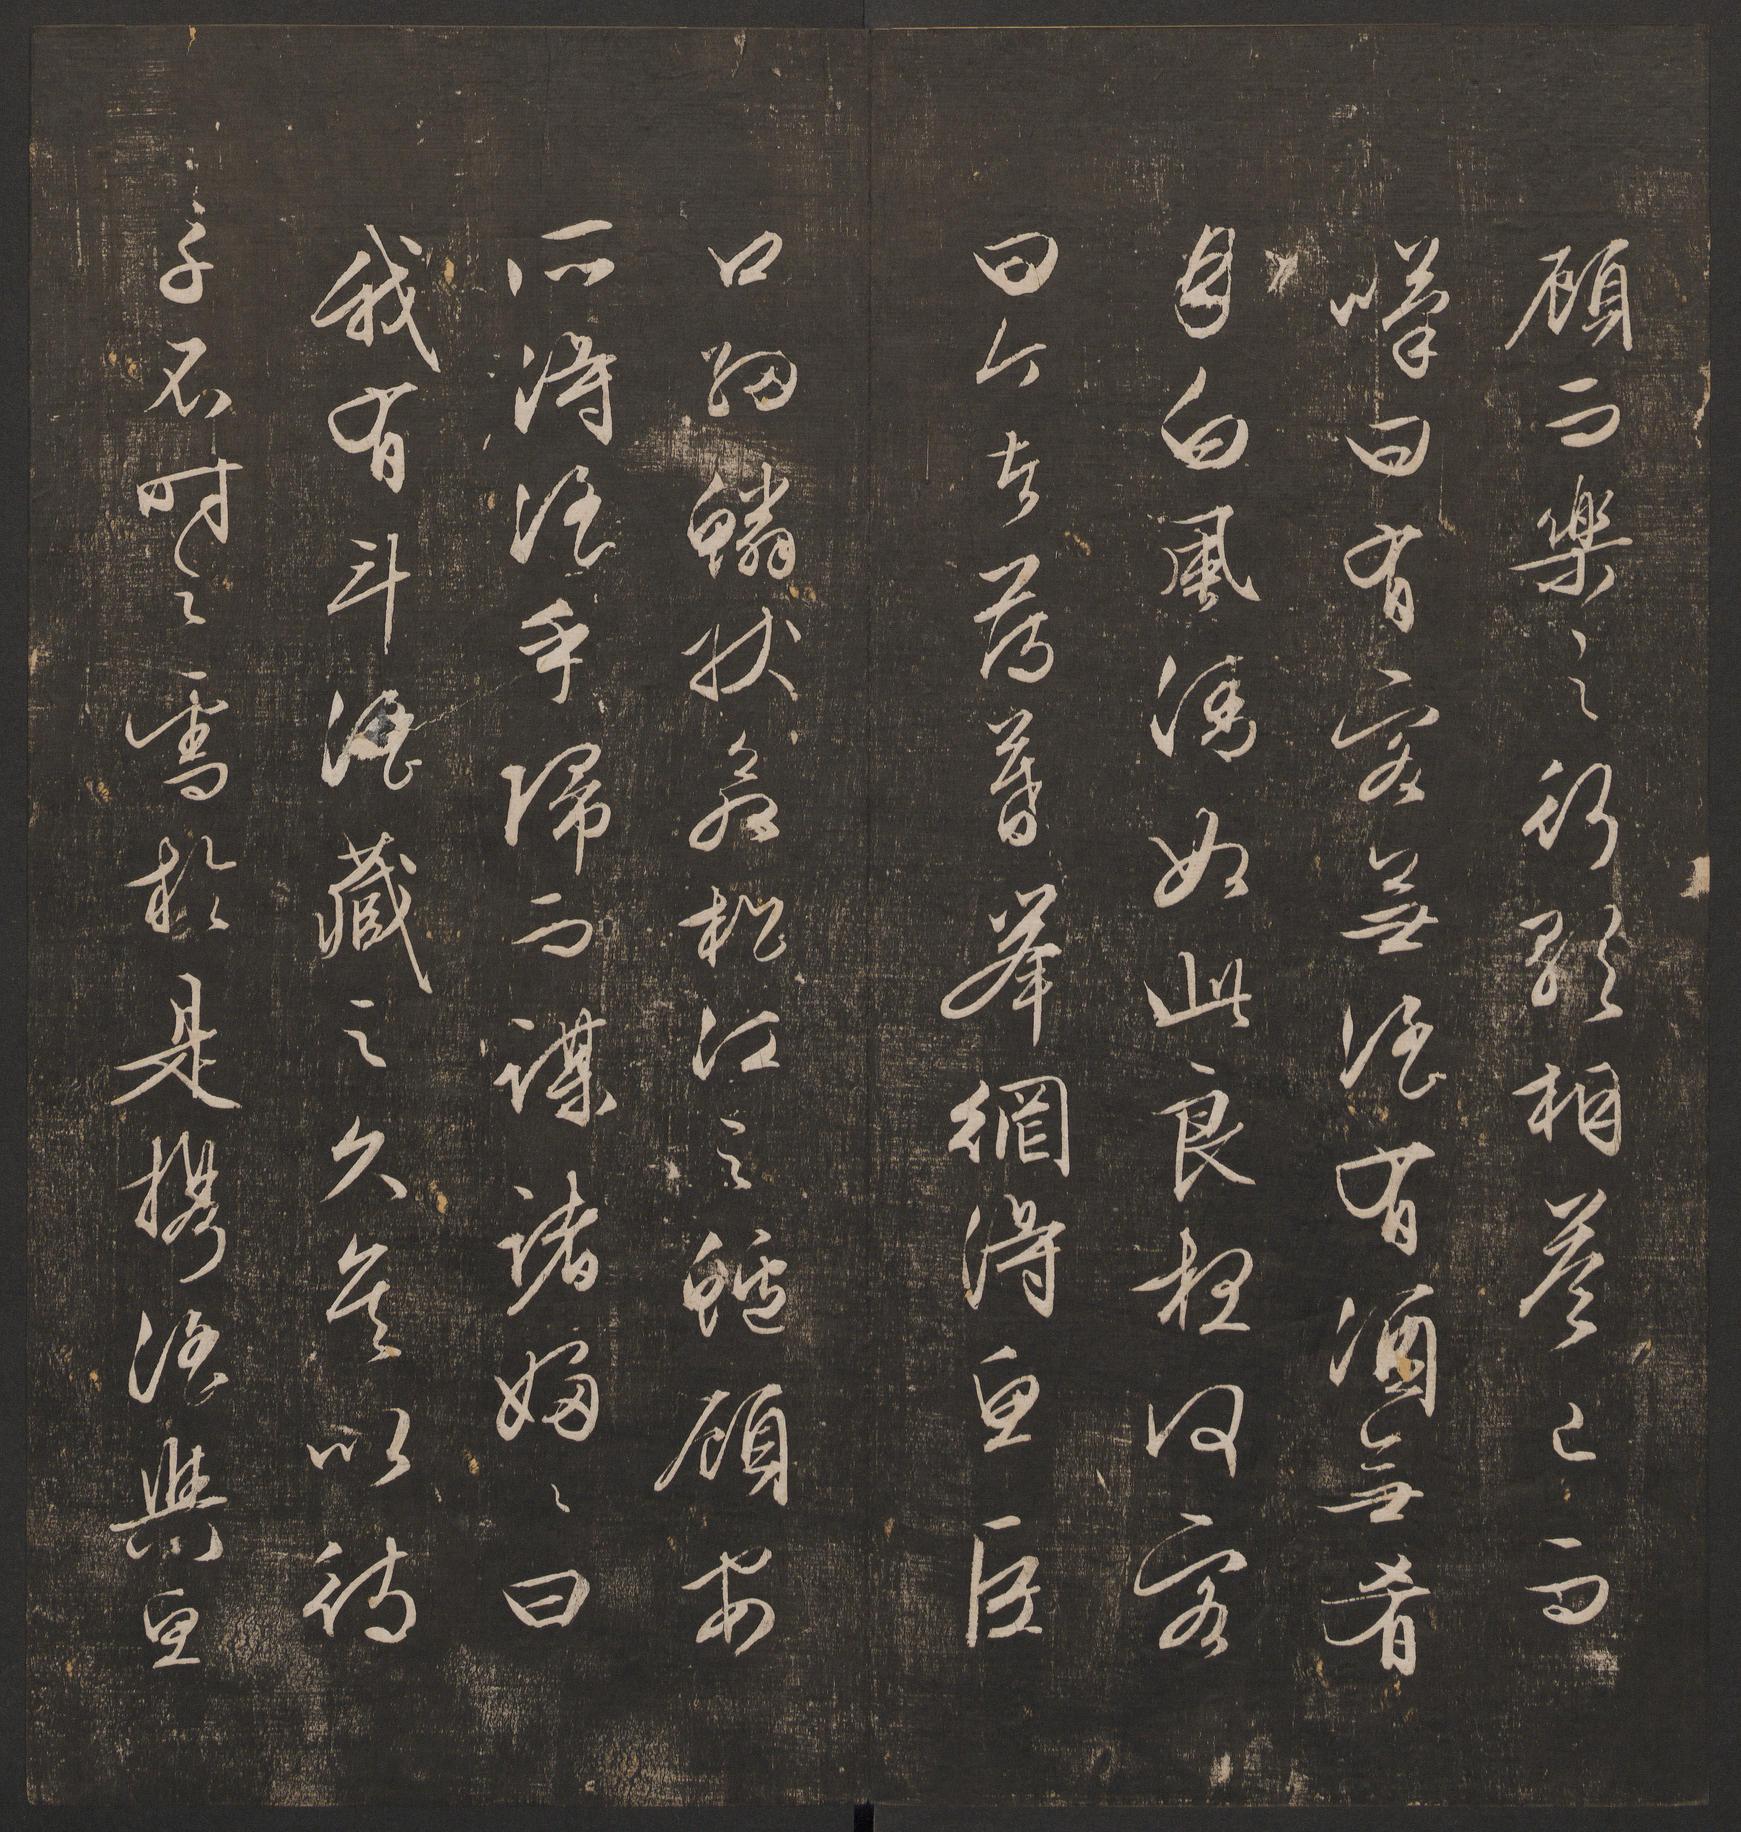 顧而樂之行歌相答已而
嘆曰有客無酒有酒無肴
月白風清如此良夜何客
曰今者薄暮舉網得魚巨
口細鱗狀若松江之鱸顧安
所得酒乎歸而謀諸婦〻曰
我有斗酒藏之久矣以待
子不時之需於是携酒與魚